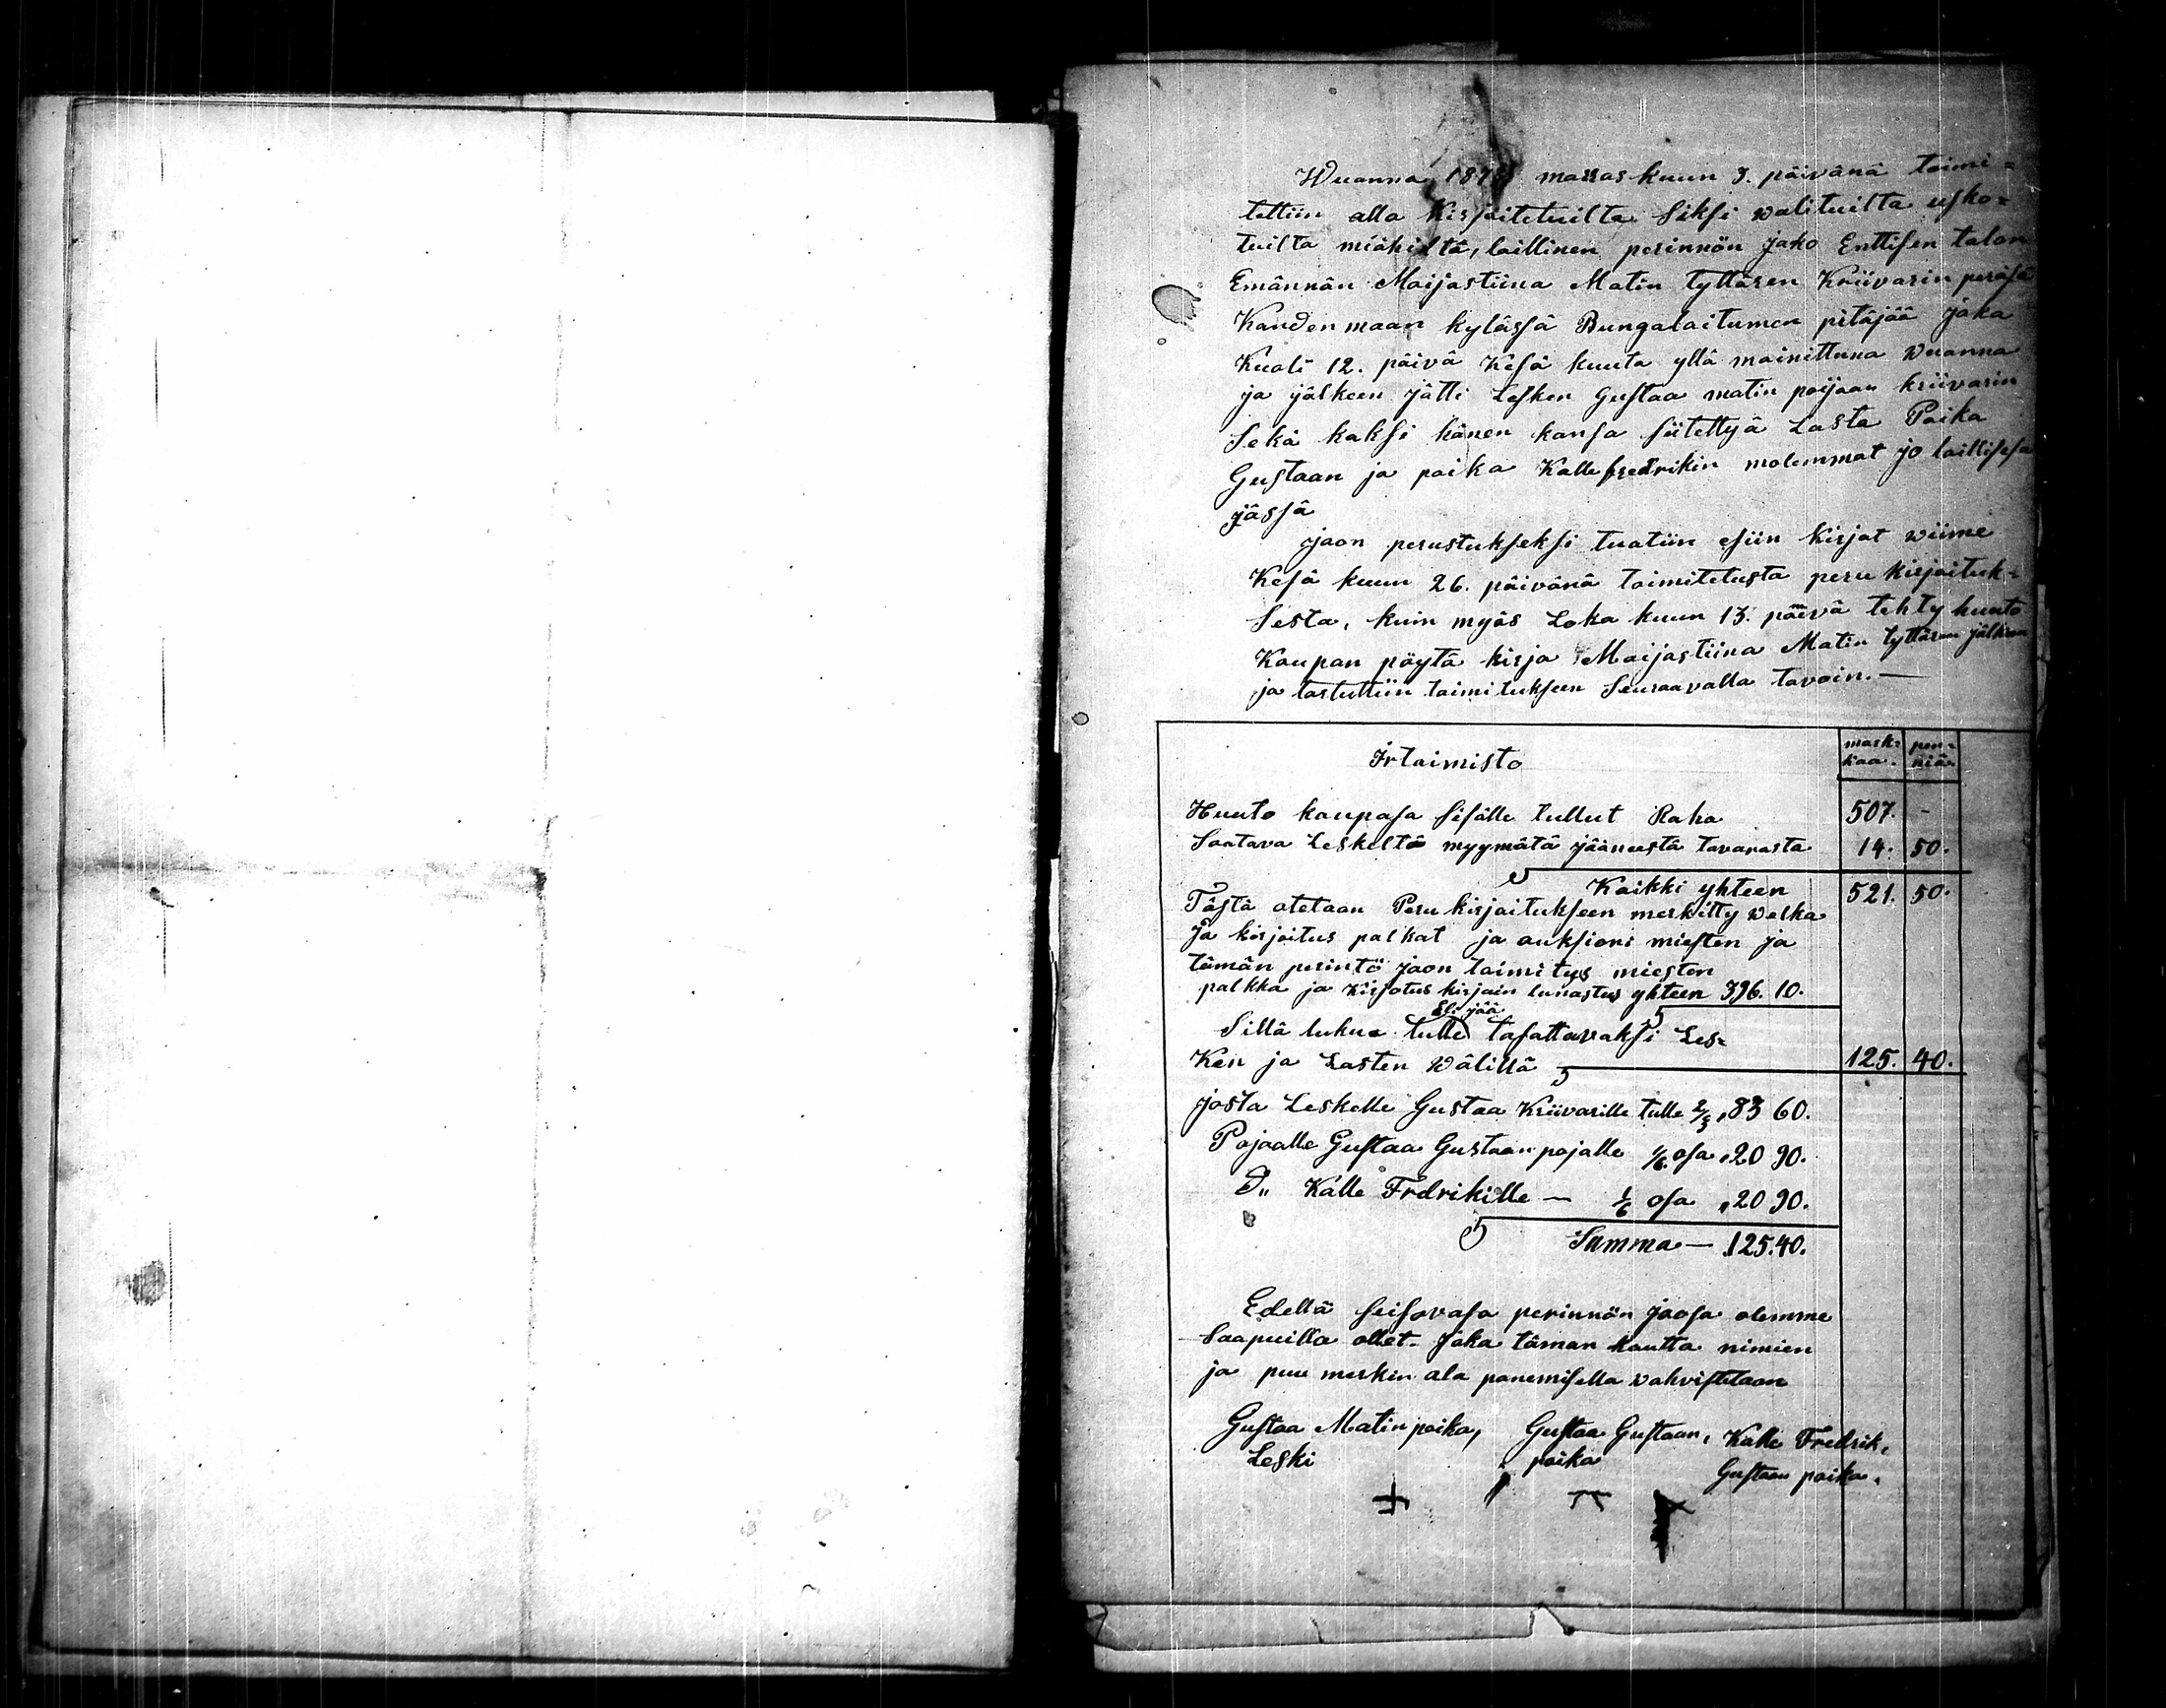 Wuanna 187 marraskuun 3. päivänä toimi=
tettiin alla kirjoitetuilta siksi walituilta usko=
tuilta miähiltä, laillinen perinnön jako Enttisen talon
Emännän Maijastiina Matin tyttären Kriivarin peräsä
Kauden maan kylässä Pungalaitumen pitäjää joka
Kuali 12. päivä Kesä kuuta yllä mainittuna wuanna
ja jälkeen jätti Lesken Gustaa matin poijaan kriivarin
Sekä kaksi hänen kansa siitettyä Lasta Poika
Gustaan ja poika Kalle fredrikin molemmat jo laillisesa
jässä
Jaon perustukseksi tuatiin esiin kirjat wiime
Kesä kuun 26. päivänä toimitetusta peru kirjoituk=
Sesta, kuin myös Loka kuun 13. päivä tehty huuto
Kaupan pöytä kirja Maijastiina Matin tyttären jälkeen
ja tartuttiin toimitukseen Seuraavalla tavoin. —
Irtaimisto
mark= pen=
kaa. niä.
Huuto kaupasa sisälle tullut Raha 507. -
Saatava Leskeltä myymätä jääneestä tavarasta 14. 50.
Kaikki yhteen 521. 50.
Tästä otetaan Peru kirjoitukseen merkitty Welka
Ja kirjoitus palkat ja auksioni miesten ja
tämän perintö jaon toimitus miesten
palkka ja kirjotus kirjain lunastus yhteen 396. 10.
Eli jää
Sillä lukua tulle tasattavaksi Les=
Ken ja Lasten Wälillä 125. 40.
josta Leskelle Gustaa Kriivarille tulle 2/3 „83 60.
Pojaalle Gustaa Gustaan pojalle 1/6 osa „20 90.
D„ Kalle Fredrikille — 1/6 osa „20 90.
Summa — 125.40.
Edellä seisovasa perinnön jaosa olemme
Saapuilla ollet. Joka täman kautta nimien
ja puu merkin ala panemisella vahvistetaan
Gustaa Matin poika, Gustaa Gustaan, Kalle Fredrik,
Leski poika Gustaan poika.